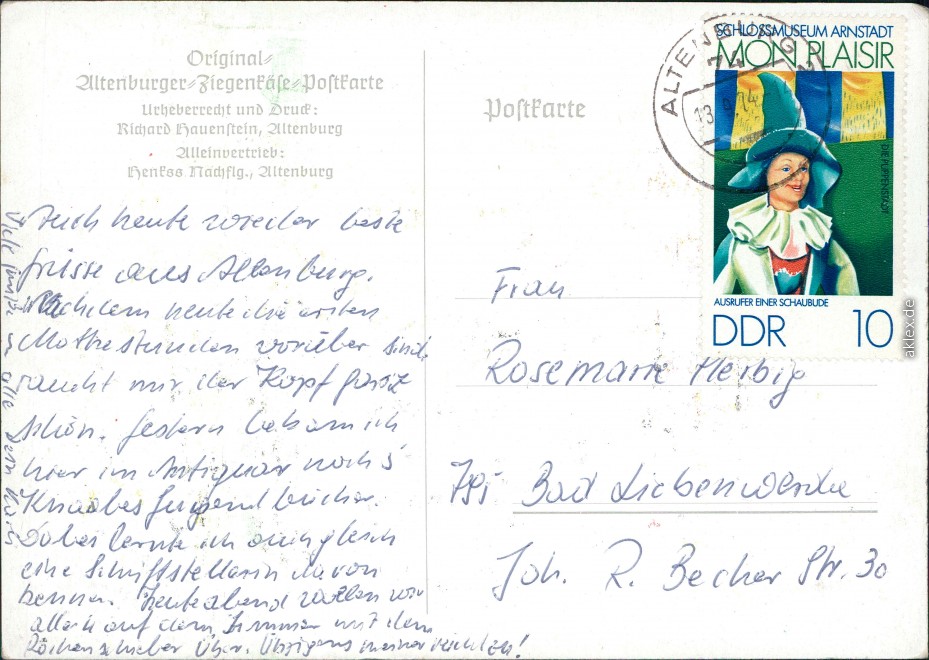 Original-
Altenburger-Ziegenkäse-Postkarte
Urheberrecht und Druck:
Richard Hauenstein, Altenburg
Alleinvertrieb:
Henkss Nachflg., Altenburg
Postkarte
ALTENBURG 2
74
13. 74
SCHLOSSMUSEUM ARNSTADT
MON PLAISIR
DIE PUPPENSTADT
AUSRUFER EINER SCHAUBUDE
DDR 10
aklex.de
Auch heute wieder beste
Grüsse aus Altenburg.
Nachdem heute die ersten
Mathestunden vorüber sind,
raucht mir der Kopf ganz
schön. Gestern bekam ich
hier im Antiquar noch 5
Knabes Jugendbücher.
Dabei lernte ich auch gleich
eine Schriftstellerin davon
kennen. Heute abend wollen wir
auf dem Zimmer mit dem
Rechenschieber
Frau
Rosemarie Herbig
795 Bad Liebenwerda
Joh. R. Becher Str. 30